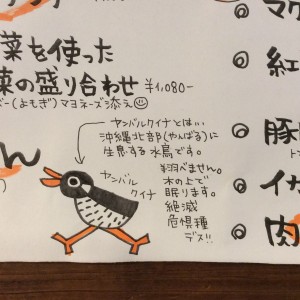 菜を使った
菜の盛り合わせ ¥1,080-
(よもぎ)マヨネーズ添え
ヤンバルクイナとは…
沖縄北部(やんばる)に
生息する水鳥です。
翔べません。
木の上で
眠ります。
絶滅
危惧種
デス!!
ヤンバル
クイナ
ん
マク
紅
豚
ト
イカ
肉